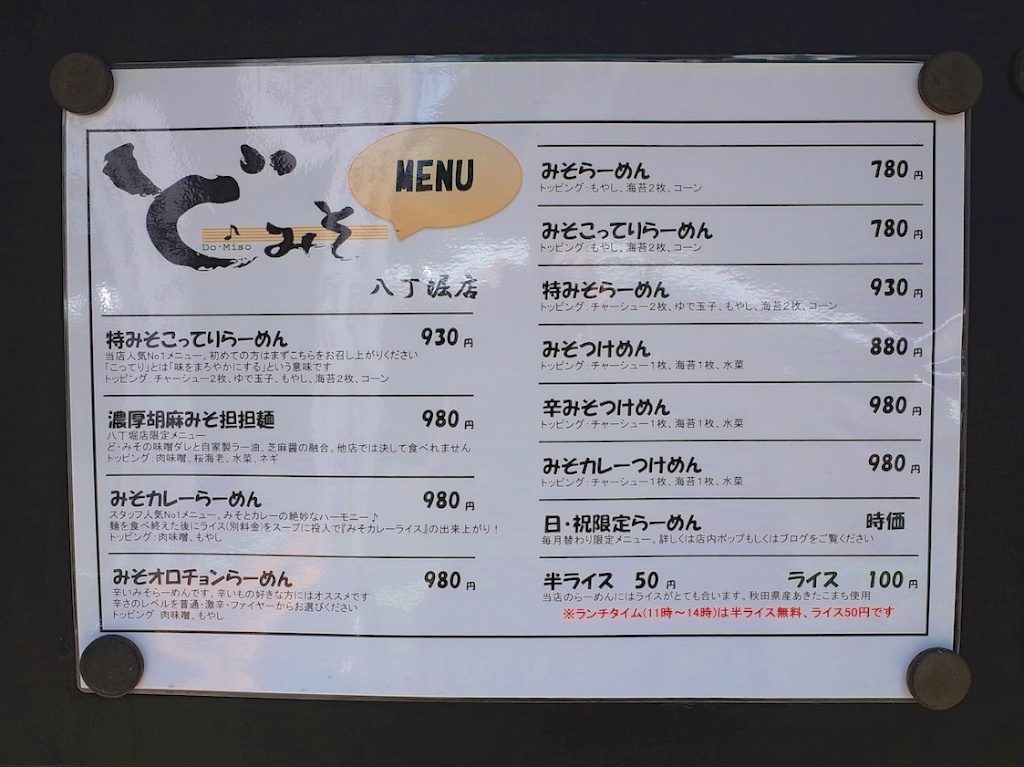 ど・みそ
Do・Miso
MENU
八丁堀店
特みそこってりらーめん 930円
当店人気No1メニュー。初めての方はまずこちらをお召し上がりください
「こってり」とは「味をまろやかにする」という意味です
トッピング:チャーシュー2枚、ゆで玉子、もやし、海苔2枚、コーン
濃厚胡麻みそ担担麺 980円
八丁堀店限定メニュー
ど・みその味噌ダレと自家製ラー油、芝麻醤の融合。他店では決して食べれません
トッピング:肉味噌、桜海老、水菜、ネギ
みそカレーらーめん 980円
スタッフ人気No1メニュー。みそとカレーの絶妙なハーモニー♪
麺を食べ終えた後にライス(別料金)をスープに投入で『みそカレーライス』の出来上がり!
トッピング:肉味噌、もやし
みそオロチョンらーめん 980円
辛いみそらーめんです。辛いもの好きな方にはオススメです
辛さのレベルを普通・激辛・ファイヤーからお選びください
トッピング:肉味噌、もやし
みそらーめん 780円
トッピング:もやし、海苔2枚、コーン
みそこってりらーめん 780円
トッピング:もやし、海苔2枚、コーン
特みそらーめん 930円
トッピング:チャーシュー2枚、ゆで玉子、もやし、海苔2枚、コーン
みそつけめん 880円
トッピング:チャーシュー1枚、海苔1枚、水菜
辛みそつけめん 980円
トッピング:チャーシュー1枚、海苔1枚、水菜
みそカレーつけめん 980円
トッピング:チャーシュー1枚、海苔1枚、水菜
日・祝限定らーめん 時価
毎月替わり限定メニュー。詳しくは店内ポップもしくはブログをご覧ください
半ライス 50円 ライス 100円
当店のらーめんにはライスがとても合います。秋田県産あきたこまち使用
※ランチタイム(11時~14時)は半ライス無料、ライス50円です